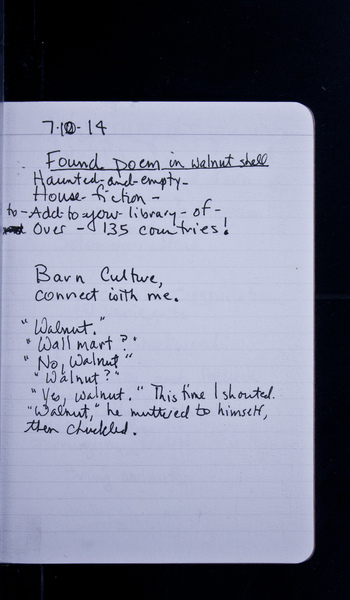 7-10-14
Found poem in walnut shell
Haunted-and-empty-
House-fiction-
to-Add-to-your-library-of-
Over - 135 countries!
Barn Culture,
connect with me.
"Walnut."
"Wallmart?"
"No, walnut"
"Walnut?"
"Yes, walnut." This time I shouted.
"Walnut," he muttered to himself,
then chuckled.